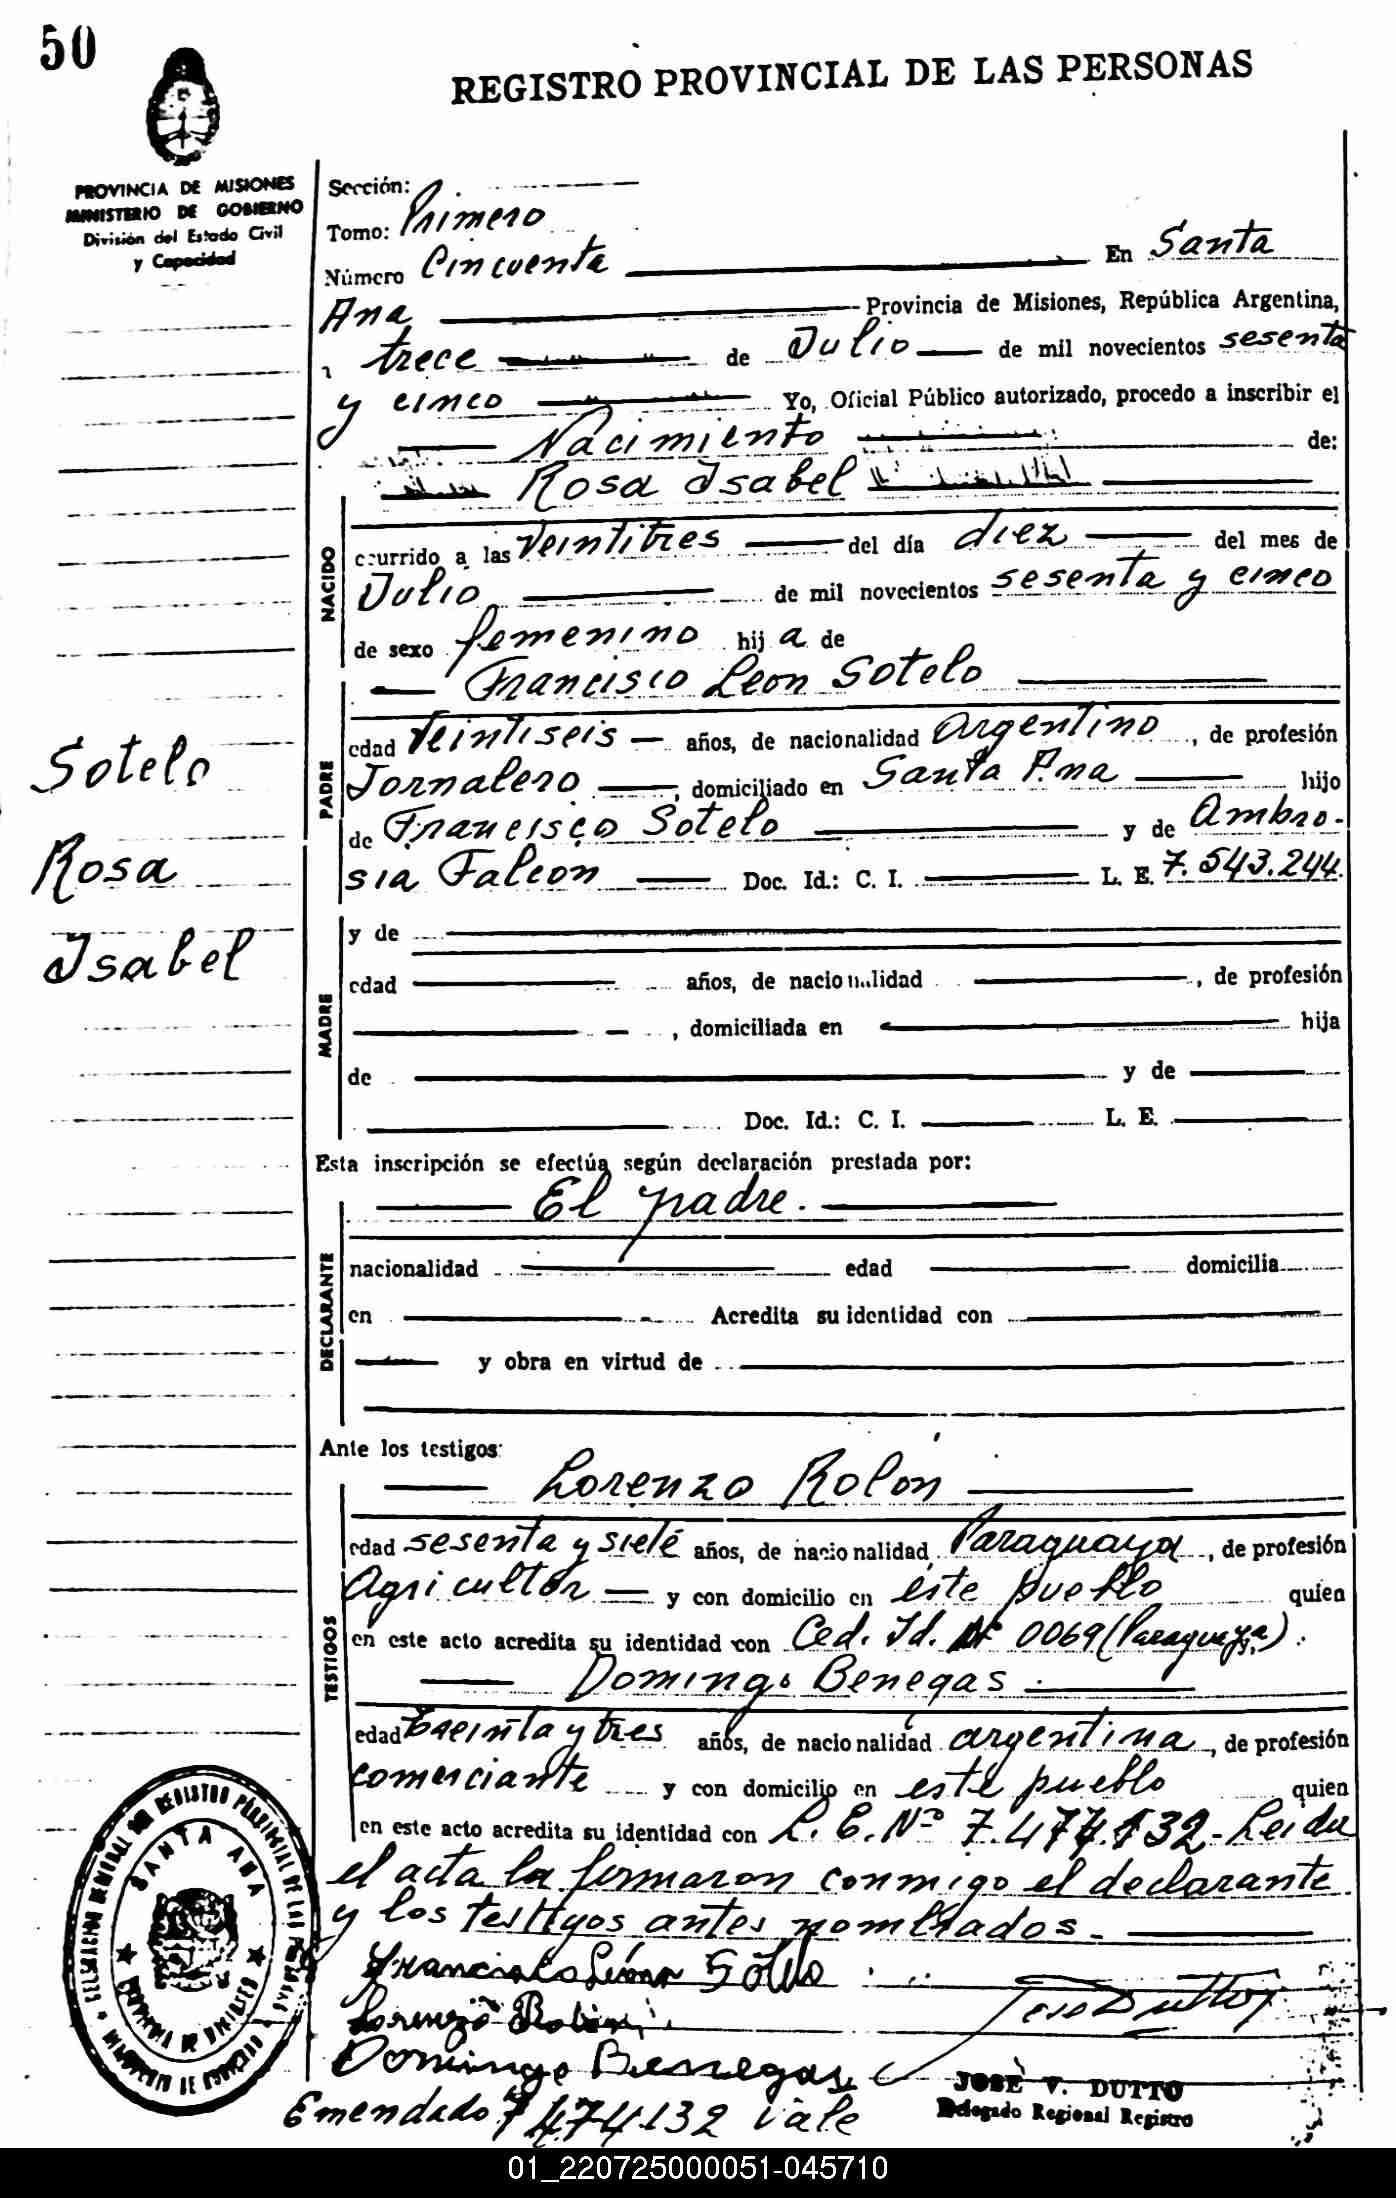 50
REGISTRO PROVINCIAL DE LAS PERSONAS
PROVINCIA DE MISIONES
MINISTERIO DE GOBIERNO
División del Estado Civil
y Capacidad
Sección:
Tomo: Primero
Número Cincuenta En Santa
Ana Provincia de Misiones, República Argentina,
a trece de Julio de mil novecientos sesenta
y cinco Yo, Oficial Público autorizado, procedo a inscribir el
Nacimiento de:
Rosa Isabel
NACIDO
ocurrido a las Veintitres del día diez del mes de
Julio de mil novecientos sesenta y cinco
de sexo femenino hij a de
Francisco Leon Sotelo
PADRE
edad Veintiseis años, de nacionalidad Argentino, de profesión
Jornalero, domiciliado en Santa Ana hijo
de Francisco Sotelo y de Ambro-
sia Falcon Doc. Id.: C. I. L. E. 7.543.244.
Sotelo
Rosa
Isabel
MADRE
y de
edad años, de nacionalidad, de profesión
, domiciliada en hija
de y de
Doc. Id.: C. I. L. E.
Esta inscripción se efectúa según declaración prestada por:
El padre.
DECLARANTE
nacionalidad edad domicilia
en Acredita su identidad con
y obra en virtud de
Ante los testigos:
Lorenzo Rolón
TESTIGOS
edad sesenta y siete años, de nacionalidad Paraguaya, de profesión
Agricultor y con domicilio en éste pueblo quien
en este acto acredita su identidad con Ced. Id. Nº 0069 (Paraguaya).
Domingo Benegas
edad treinta y tres años, de nacionalidad argentina, de profesión
comerciante y con domicilio en este pueblo quien
en este acto acredita su identidad con L. E. Nº 7.474.132- Leida
el acta la firmaron conmigo el declarante
y los testigos antes nombrados.
Francisco León Sotelo
Lorenzo Rolon
Jose Dutto
Domingo Benegas
JOSÉ V. DUTTO
Delegado Regional Registro
Emendado 7474132 vale
SANTA ANA
PROVINCIA DE MISIONES
01_220725000051-045710